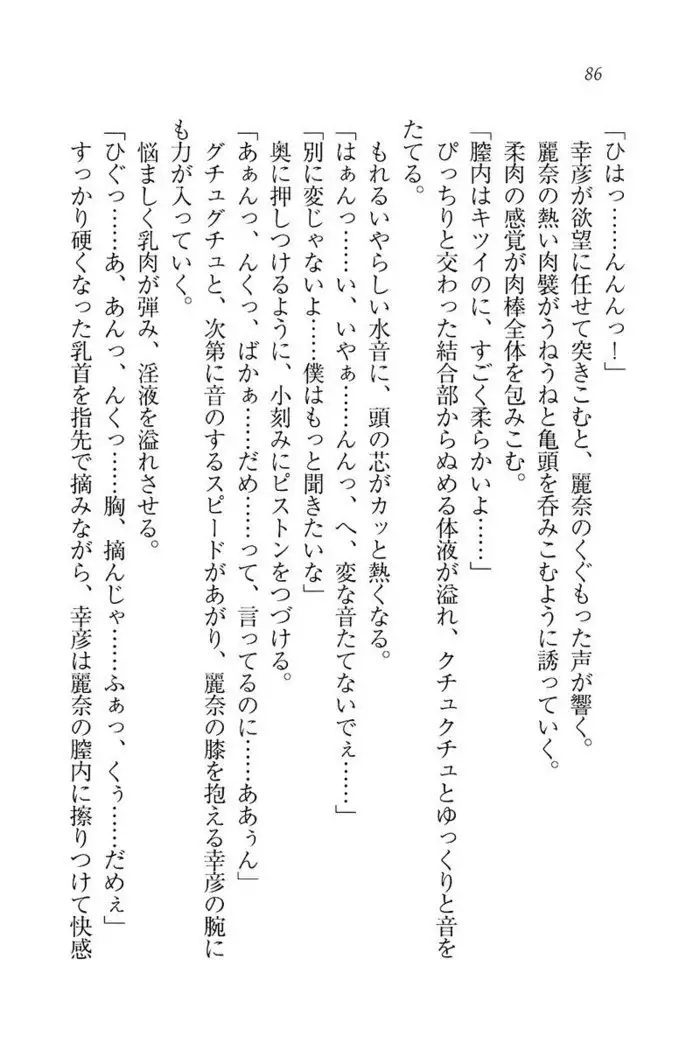 86
「ひはっ……んんんっ！」
幸彦が欲望に任せて突きこむと、麗奈のくぐもった声が響く。
麗奈の熱い肉襞がうねうねと亀頭を呑みこむように誘っていく。
柔肉の感覚が肉棒全体を包みこむ。
「膣内はキツイのに、すごく柔らかいよ……」
ぴっちりと交わった結合部からぬめる体液が溢れ、クチュクチュとゆっくりと音を
たてる。
もれるいやらしい水音に、頭の芯がカッと熱くなる。
「はぁんっ……い、いやぁ……んんっ、へ、変な音たてないでぇ……」
「別に変じゃないよ……僕はもっと聞きたいな」
奥に押しつけるように、小刻みにピストンをつづける。
「あぁんっ、んくっ、ばかぁ……だめ……って、言ってるのに……ああぅん」
グチュグチュと、次第に音のするスピードがあがり、麗奈の膝を抱える幸彦の腕に
も力が入っていく。
悩ましく乳肉が弾み、淫液を溢れさせる。
「ひぐっ……あ、あんっ、んくっ……胸、摘んじゃ……ふぁっ、くぅ……だめぇ」
すっかり硬くなった乳首を指先で摘みながら、幸彦は麗奈の膣内に擦りつけて快感